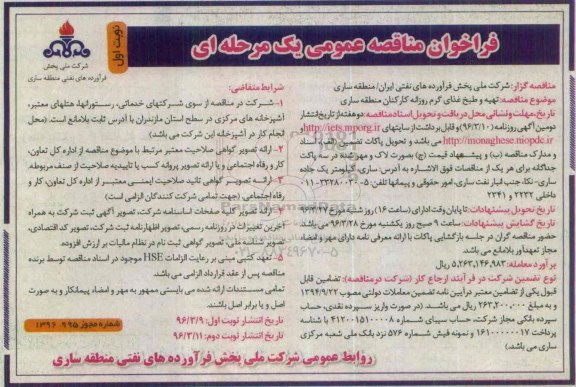 فراخوان مناقصه عمومی یک مرحله ای
نوبت اول
شرکت ملی پخش
فرآورده های نفتی منطقه ساری
مناقصه گزار: شرکت ملی پخش فرآورده های نفتی ایران/ منطقه ساری
موضوع مناقصه: تهیه و طبخ غذای گرم روزانه کارکنان منطقه ساری
تاریخ، مهلت و نشانی محل دریافت و تحویل اسناد مناقصه: دو هفته از تاریخ انتشار
دومین آگهی روزنامه (۹۶/۳/۱۰) و قابل برداشت از سایتهای http://iets.mporg.ir
http://monaghese.niopdc.ir می باشد و تحویل پاکات تضمین (الف)، اسناد
و مدارک مناقصه (ب) و پیشنهاد قیمت (ج) بصورت لاک و مهر شده در سه پاکت
جداگانه برای هر یک از مناقصات فوق الاشاره به آدرس: ساری، کیلومتر یک جاده
ساری-نکا، جنب انبار نفت ساری، امور حقوقی و پیمانها تلفن: ۵-۰۱۱-۳۳۲۸۰۰۳۰
داخلی ۲۲۳۲ و ۲۲۴۱
تاریخ تحویل پیشنهادات: تا پایان وقت اداری (ساعت ۱۶) روز شنبه مورخ ۹۶/۳/۲۷
تاریخ گشایش پیشنهادات: ساعت ۹ صبح روز یکشنبه مورخ ۹۶/۳/۲۸ می باشد
حضور مناقصه گران در جلسه بازگشایی پاکات با ارائه معرفی نامه دارای مهر و امضاء
مجاز تعهدآور بلامانع می باشد.
برآورد معامله: ۵,۲۶۳,۱۴۶,۹۸۳ ریال
نوع تضمین شرکت در فرآیند ارجاع کار (شرکت در مناقصه): تضامین قابل
قبول یکی از تضامین معتبر در آیین نامه تضمین معاملات دولتی مصوب ۱۳۹۴/۹/۲۲
و به مبلغ ۲۶۳,۲۰۰,۰۰۰ ریال می باشد. (در صورت واریز سپرده نقدی، حساب
سپرده بانکی مجاز شرکت، حساب سیبای شماره ۴۱۲۰۰۱۵۱۰۰۰۸ با شناسه
پرداخت ۱۶۱۰۰۰۰۰۰۱۷ و نمونه فیش شماره ۵۷۶ نزد بانک ملی شعبه مرکزی
ساری می باشد.)
شرایط متقاضی:
۱- شرکت در مناقصه از سوی شرکتهای خدماتی، رستورانها، هتلهای معتبر،
آشپزخانه های مرکزی در سطح استان مازندران با آدرس ثابت بلامانع است. (محل
انجام کار در آشپزخانه این شرکت می باشد)
۲- ارائه تصویر گواهی صلاحیت معتبر مرتبط با موضوع مناقصه از اداره کل تعاون،
کار و رفاه اجتماعی و یا ارائه تصویر پروانه کسب یا تاییدیه صلاحیت از صنف مربوطه.
۳- ارائه تصویر گواهی تائید صلاحیت ایمنی معتبر از اداره کل تعاون، کار و
رفاه اجتماعی (جهت تمامی شرکت کنندگان الزامی است)
۴- تصویر کلیه صفحات اساسنامه شرکت، تصویر آگهی ثبت شرکت به همراه
آخرین تغییرات در روزنامه رسمی، تصویر اظهارنامه ثبت شرکت، تصویر کد اقتصادی،
تصویر شناسه ملی، تصویر گواهی ثبت نام در نظام مالیات بر ارزش افزوده.
۵- تعهد کتبی مبنی بر رعایت الزامات HSE موجود در اسناد مناقصه توسط برنده
مناقصه پس از عقد قرارداد الزامی می باشد.
تمامی مستندات ارائه شده می بایستی ممهور به مهر و امضاء پیمانکار و به صورت
اصل و یا برابر اصل باشند.
تاریخ انتشار نوبت اول: ۹۶/۳/۹
تاریخ انتشار نوبت دوم: ۹۶/۳/۱۱
شماره مجوز ۱۳۹۶.۹۹۵
روابط عمومی شرکت ملی پخش فرآورده های نفتی منطقه ساری